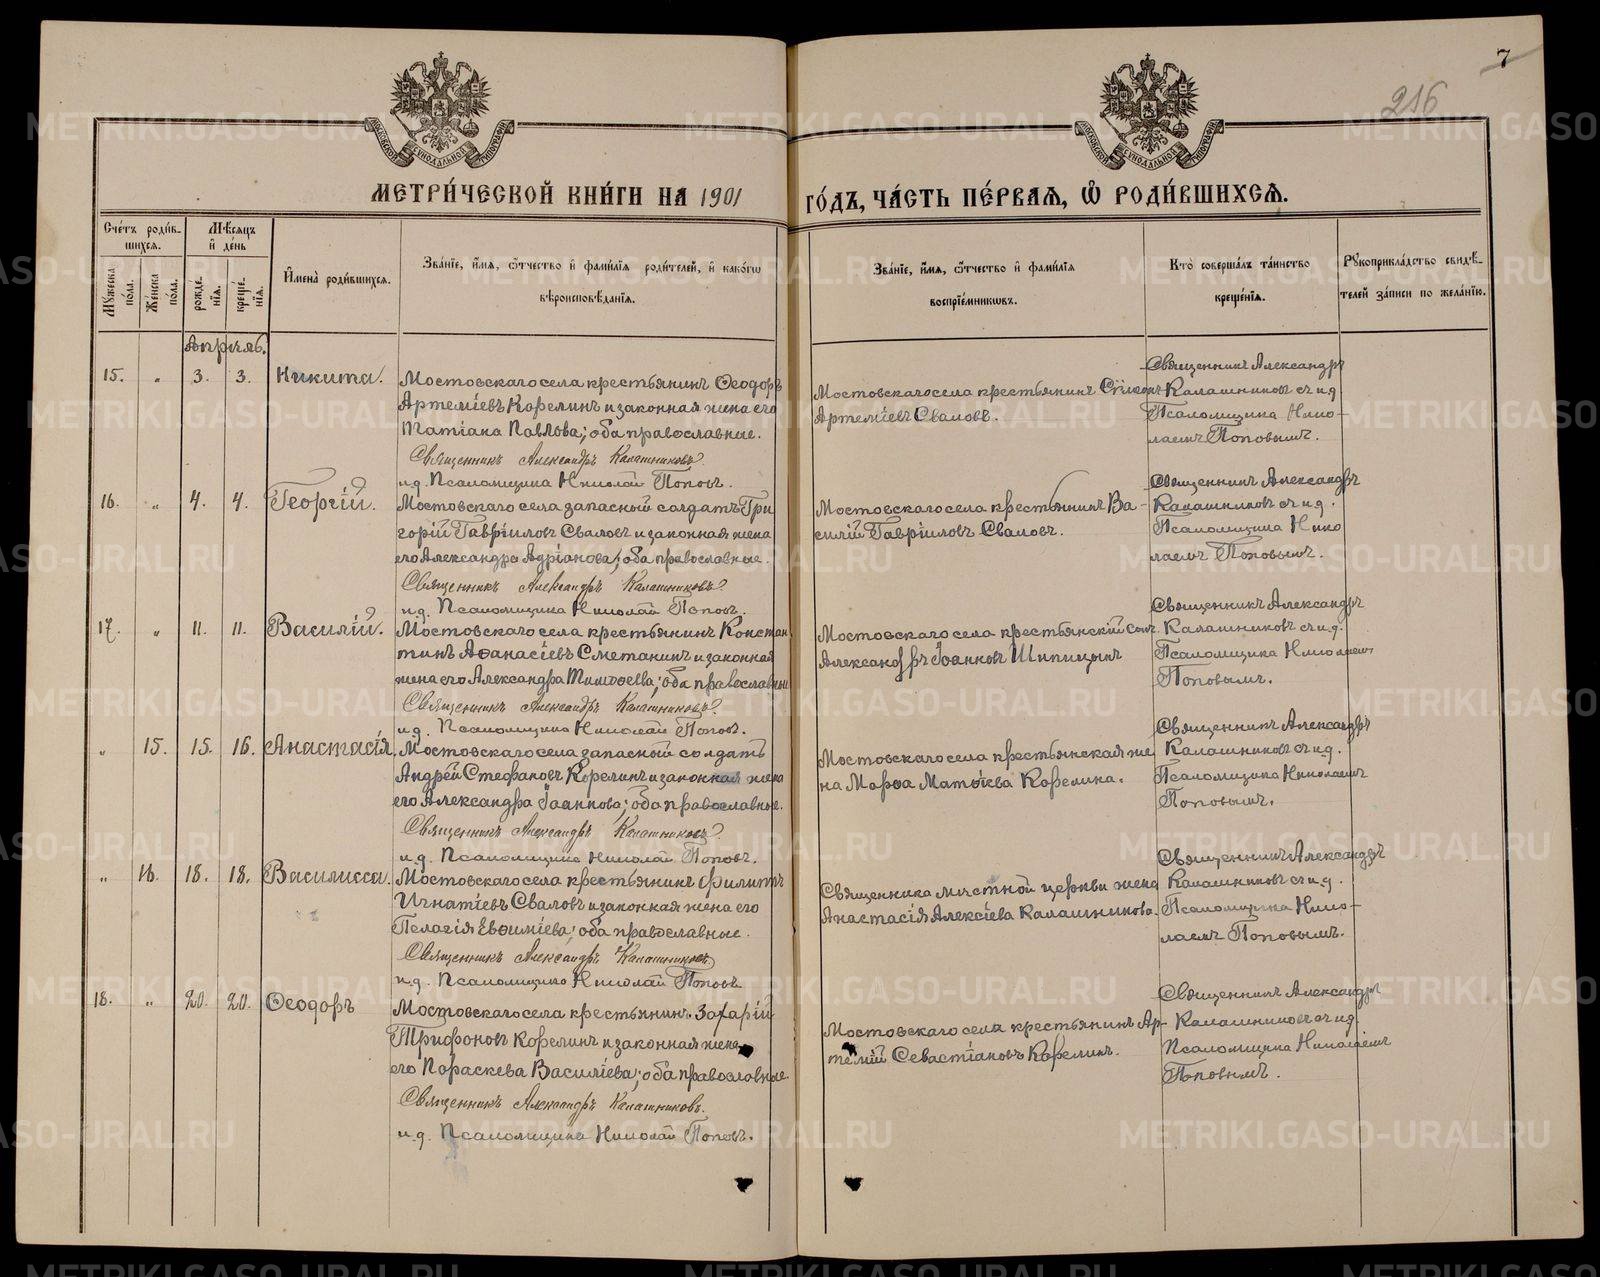 7
216
МОСКОВСКОЙ СѴНОДАЛЬНОЙ ТИПОГРАФІИ
МОСКОВСКОЙ СѴНОДАЛЬНОЙ ТИПОГРАФІИ
МЕТРИ́ЧЕСКОЙ КНИ́ГИ НА 1901 ГО́ДЪ, ЧА́СТЬ ПЕ́РВАЯ, Ѡ РОДИ́ВШИХСЯ.
Сче́тъ роди́в-
шихся.
Мѣ́сяцъ
и҆ де́нь
Му́жеска по́ла.
Же́нска по́ла.
рожде́-
нїя.
креще́-
нїя.
И҆мена̀ роди́вшихся.
Зва́нїе, и҆́мя, ѻ҆́тчество и҆ фами́лїя роди́телей, и҆ како́гѡ
вѣроисповѣ́данїя.
Зва́нїе, и҆́мя, ѻ҆́тчество и҆ фами́лїя
воспрїе́мникѡвъ.
Кто̀ соверша́лъ та́инство
креще́нїя.
Рꙋкоприкла́дство свидѣ́-
телей за́писи по жела́нїю.
Апрѣль.
15. „ 3. 3. Никита.
Мостовскаго села крестьянинъ Ѳеодоръ
Артеміевъ Корелинъ и законная жена его
Татіана Павлова; оба православные.
Священникъ Александръ Калашниковъ.
и.д. Псаломщика Николай Поповъ.
Мостовскаго села крестьянинъ
Артеміевъ Сваловъ.
Священникъ Александръ
Калашниковъ съ и.д.
Псаломщика Нико-
лаемъ Поповымъ.
16. „ 4. 4. Георгій.
Мостовскаго села запасный солдатъ Гри
горій Гавріиловъ Сваловъ и законная жена
его Александра Адріанова; оба православные.
Священникъ Александръ Калашниковъ.
и.д. Псаломщика Николай Поповъ.
Мостовскаго села крестьянинъ Ва-
силій Гавріиловъ Сваловъ.
Священникъ Александръ
Калашниковъ съ и.д.
Псаломщика Нико
лаемъ Поповымъ.
17. „ 11. 11. Василій.
Мостовскаго села крестьянинъ Констан
тинъ Аѳанасіевъ Сметанинъ и законная
жена его Александра Тимоѳеева; оба православные
Священникъ Александръ Калашниковъ.
и.д. Псаломщика Николай Поповъ.
Мостовскаго села крестьянскій сынъ
Александръ Іоанновъ Шипицынъ
Священникъ Александръ
Калашниковъ съ и.д.
Псаломщика Николаемъ
Поповымъ.
„ 15. 15. 16. Анастасія.
Мостовскаго села запасный солдатъ
Андрей Стефановъ Корелинъ и законная жена
его Александра Іоаннова; оба православные.
Священникъ Александръ Калашниковъ.
и.д. Псаломщика Николай Поповъ.
Мостовскаго села крестьянская же
на Марѳа Матѳіева Корелина.
Священникъ Александръ
Калашниковъ съ и.д.
Псаломщика Николаемъ
Поповымъ.
„ 16. 18. 18. Василисса.
Мостовскаго села крестьянинъ Филиппъ
Игнатіевъ Сваловъ и законная жена его
Пелагія Евѳиміева; оба православные.
Священникъ Александръ Калашниковъ.
и.д. Псаломщика Николай Поповъ.
Священника мѣстной церкви жена
Анастасія Алексіева Калашникова.
Священникъ Александръ
Калашниковъ съ и.д.
Псаломщика Нико-
лаемъ Поповымъ.
18. „ 20. 20. Ѳеодоръ
Мостовскаго села крестьянинъ Захарій
Трифоновъ Корелинъ и законная жена
его Параскева Василіева; оба православные.
Священникъ Александръ Калашниковъ.
и.д. Псаломщика Николай Поповъ.
Мостовскаго села крестьянинъ Ар-
темій Севастіановъ Корелинъ.
Священникъ Александръ
Калашниковъ съ и.д.
Псаломщика Николаемъ
Поповымъ.
METRIKI.GASO-URAL.RU